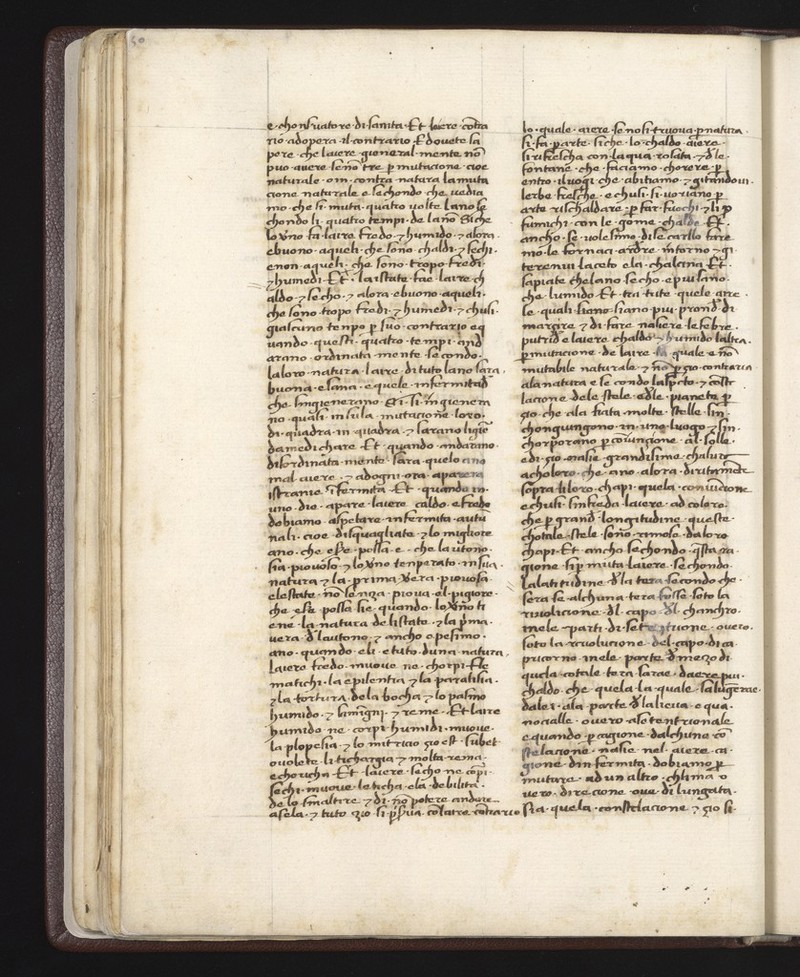 50
e · chonſuatore · di ſanita · Et · laiere · cōtra
rio · adopera · il · contrario · E dovete ſa
pere · che laiere · general · mente · nō
puo · auere · ſenō · tre · ꝑ mutacione · cioe
naturale · om · contra · natura · la muta
cione · naturale · e ſechondo · che uedia
mo · che ſi · muta · quatro · uolte · lano · ſe
chondo li · quatro · tempi · de lano · Siche
lo vno · fa · laire · fredo · ⁊ humido · ⁊ alora ·
e buono · aqueli · che ſono · chaldi · ⁊ ſechi ·
e non · aqueli · che · ſono · tropo · fredi ·
⁊ humedi · Et · la iſtate · fae · laire · ch
aldo · ⁊ ſecho · ⁊ alora · e buono · aqueli ·
che ſono · tropo · fredi · ⁊ humedi · ⁊ chuſi ·
quaſcuno · tenpo · ꝑ ſuo · contrario · eq
uando · queſti · quatro · tempi · and
arano · ordinata · mente · ſecondo ·
la loro · natura · laire · di tuto lano · ſara ·
buona · e ſana · e quele · infermitad
che · ſingienerano ·
no · quaſi · in ſula · mutacione · loro ·
di · quadra · in · quadra · ⁊ ſarano · ligiē
da medichare · Et · quando · andarano ·
diſordinata · mente · ſara · quelo · ano
mal · auere · ⁊ adogni · ora · aparera
iſtranio · īfermita · Et · quando · in ·
uno · die · apare · laiere · caldo · e fredo
dobiamo · aſpetare · infermita · autū
nali · cioe · diſquagliate · ⁊ lo migliore
ano · che · eſſe · poſſa · e · che la utono ·
ſia · piouoſo · ⁊ lo vno · tenperato · in ſua ·
natura · ⁊ la · prima · vera · piouoſa ·
e leſtate · nō ſenza · pioua · el · pigiore ·
che · eſſe · poſſa · ſie · quando · lo vno · ti
ene · la · natura · de liſtate · ⁊ la p̄ma ·
uera · dˡ lautono · ⁊ ancho · e peſimo ·
ano · quando · eli · e tuto · duna · natura ·
laiere · fredo · muove · ne · chorpi · fle
matichi · la epilentia · ⁊ la paraliſia ·
⁊ la · tortura · dela bocha · ⁊ lo paſmo
humido · ⁊ · ⁊ reme · Et laire
humido · ne · corpi · humidi · muove ·
la plopeſia · ⁊ lo
ouolete · litichargia · ⁊ molta · rema ·
Et · laiere · ſecho · ne · cōpi ·
ſechi · muove · leticha · ela · debilita ·
de lo · ſmaltire · ⁊ di · nō potere · andare
aſela · ⁊ tuto · zio · ſi ·
lo · quale · aiere · ſe noſi · truoua · ꝑ natura ·
ſi · fa · ꝑ arte · ſiche · lo · chaldo · aiere ·
ſi · rifreſcha · con laqua · roſata · ⁊ dˡ le ·
fontane · che · faciamo · chorere · ꝑ
entro · i luogi · che · abitiamo · ⁊ gitandovi ·
lerbe · freſche · e chuſi · ſi · uoriano · ꝑ
arte · riſchaldare · ꝑ far · fuochi · ⁊ li ꝑ
fumichi · con le · gome · chalde · Et ·
ancho · ſe · uoleſimo · diſecarlo · fare
mo · le · fornaci · ardre · intorno · ⁊ gi
tereniui · laceto · ela · chalcina · Et ·
ſapiate · che lano · ſecho · e piu ſano ·
che · lumido · Et · tra · tute · quele · aire ·
le · quali · ſiano · ſiano · piu · prond · di
marcire · ⁊ di · fare · naſiere · le febre ·
putrid · e laiere · chaldo · ⁊ humido · laltra ·
ꝑmutacione · de laire · la · quale · e nō
mutabile · naturale · ⁊ nō · ꝑ zio · contraria
ala natura · e ſecondo · laſpeto · ⁊ coſte
lacione · dele · ſtele · edle · pianeta · ꝑ
zio · che · ala · fiata · molte · ſtelle · ſin ·
chongiungono · in · uno · luogo · ⁊ ſin ·
chorporano · ꝑ coniuncione · al · ſole ·
edi · zio · naſie · grandiſimo · chalure
acholoro · che · ano · alora · diritamēte
ſopra · li loro · chapi · quela · coniūcione ·
e chuſi · ſinfreda · laiere · ad coloro ·
che · ꝑ grand · longitudine · queſte ·
chotale · ſtele · ſono · rimoſe · daloro
chapi · Et · ancho · ſechondo · qſta · ra
gione · ſi · ꝑmuta · laiere · ſechondo ·
la latitudine · dˡla · tera · ſecondo · che ·
ſera · ſe · alchuna · tera · foſſe · ſoto · la
rivolucione · dˡ · capo · dˡ · chanchro ·
inele · parti · di ſetētrione · ouero ·
ſoto · la · rivolucione · del · capo · di ca
pricorno · inele · parte · dˡ mezo di ·
quela · cotale · tera · ſarae · daere · piu ·
chaldo · che · quela · la · quale · ſalūgerae
dalei · ala · parte · dˡ la lieua · e qua ·
nocialle · ouero · alo · tentrionale
e quando · ꝑ cagione · dalchune · co
ſtelacione · naſie · nel · aiere · ca ·
gione · din fermita · dobiamo · ꝑ
mutare · ad un altro · chlima · o
uero · direcione · oue · di lungata ·
ſia · quela · conſtelacione · ⁊ zio · ſi ·